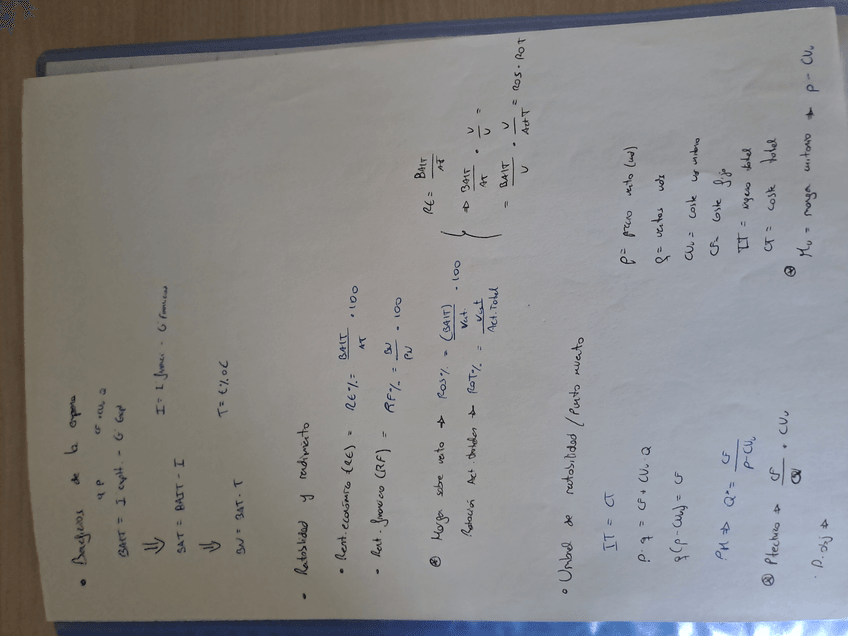 • Beneficios de la empresa
q·P CF+CVu·Q
BAIT = I explt. - G expl
⇓
BAT = BAIT - I I = I financ - G financ
⇓
BN = BAT - T
• Rentabilidad y rendimiento
• Rent. económica (RE) = RE% = BAIT / AT · 100
• Rent. financiera (RF) = RF% = BN / PN · 100
⊛ Margen sobre venta → ROS% = (BAIT) / Vent. · 100
Rotación Act totales → ROT% = Vent / Act. Total
RE = BAIT / AT
⇒ BAIT / AT · V / V =
= BAIT / V · V / Act T = ROS · ROT
• Umbral de rentabilidad / Punto muerto
IT = CT
P · q = CF + CVu · Q
q (P - CVu) = CF
PM ⇒ Q* = CF / P - CVu
⊛ P técnico → CF / Q + CVu
· P. obj →
P = precio venta (ud)
q = ventas uds
CVu = coste var unitario
CF = coste fijo
IT = ingreso total
CT = coste total
⊛ Mu = margen unitario → P - CVu